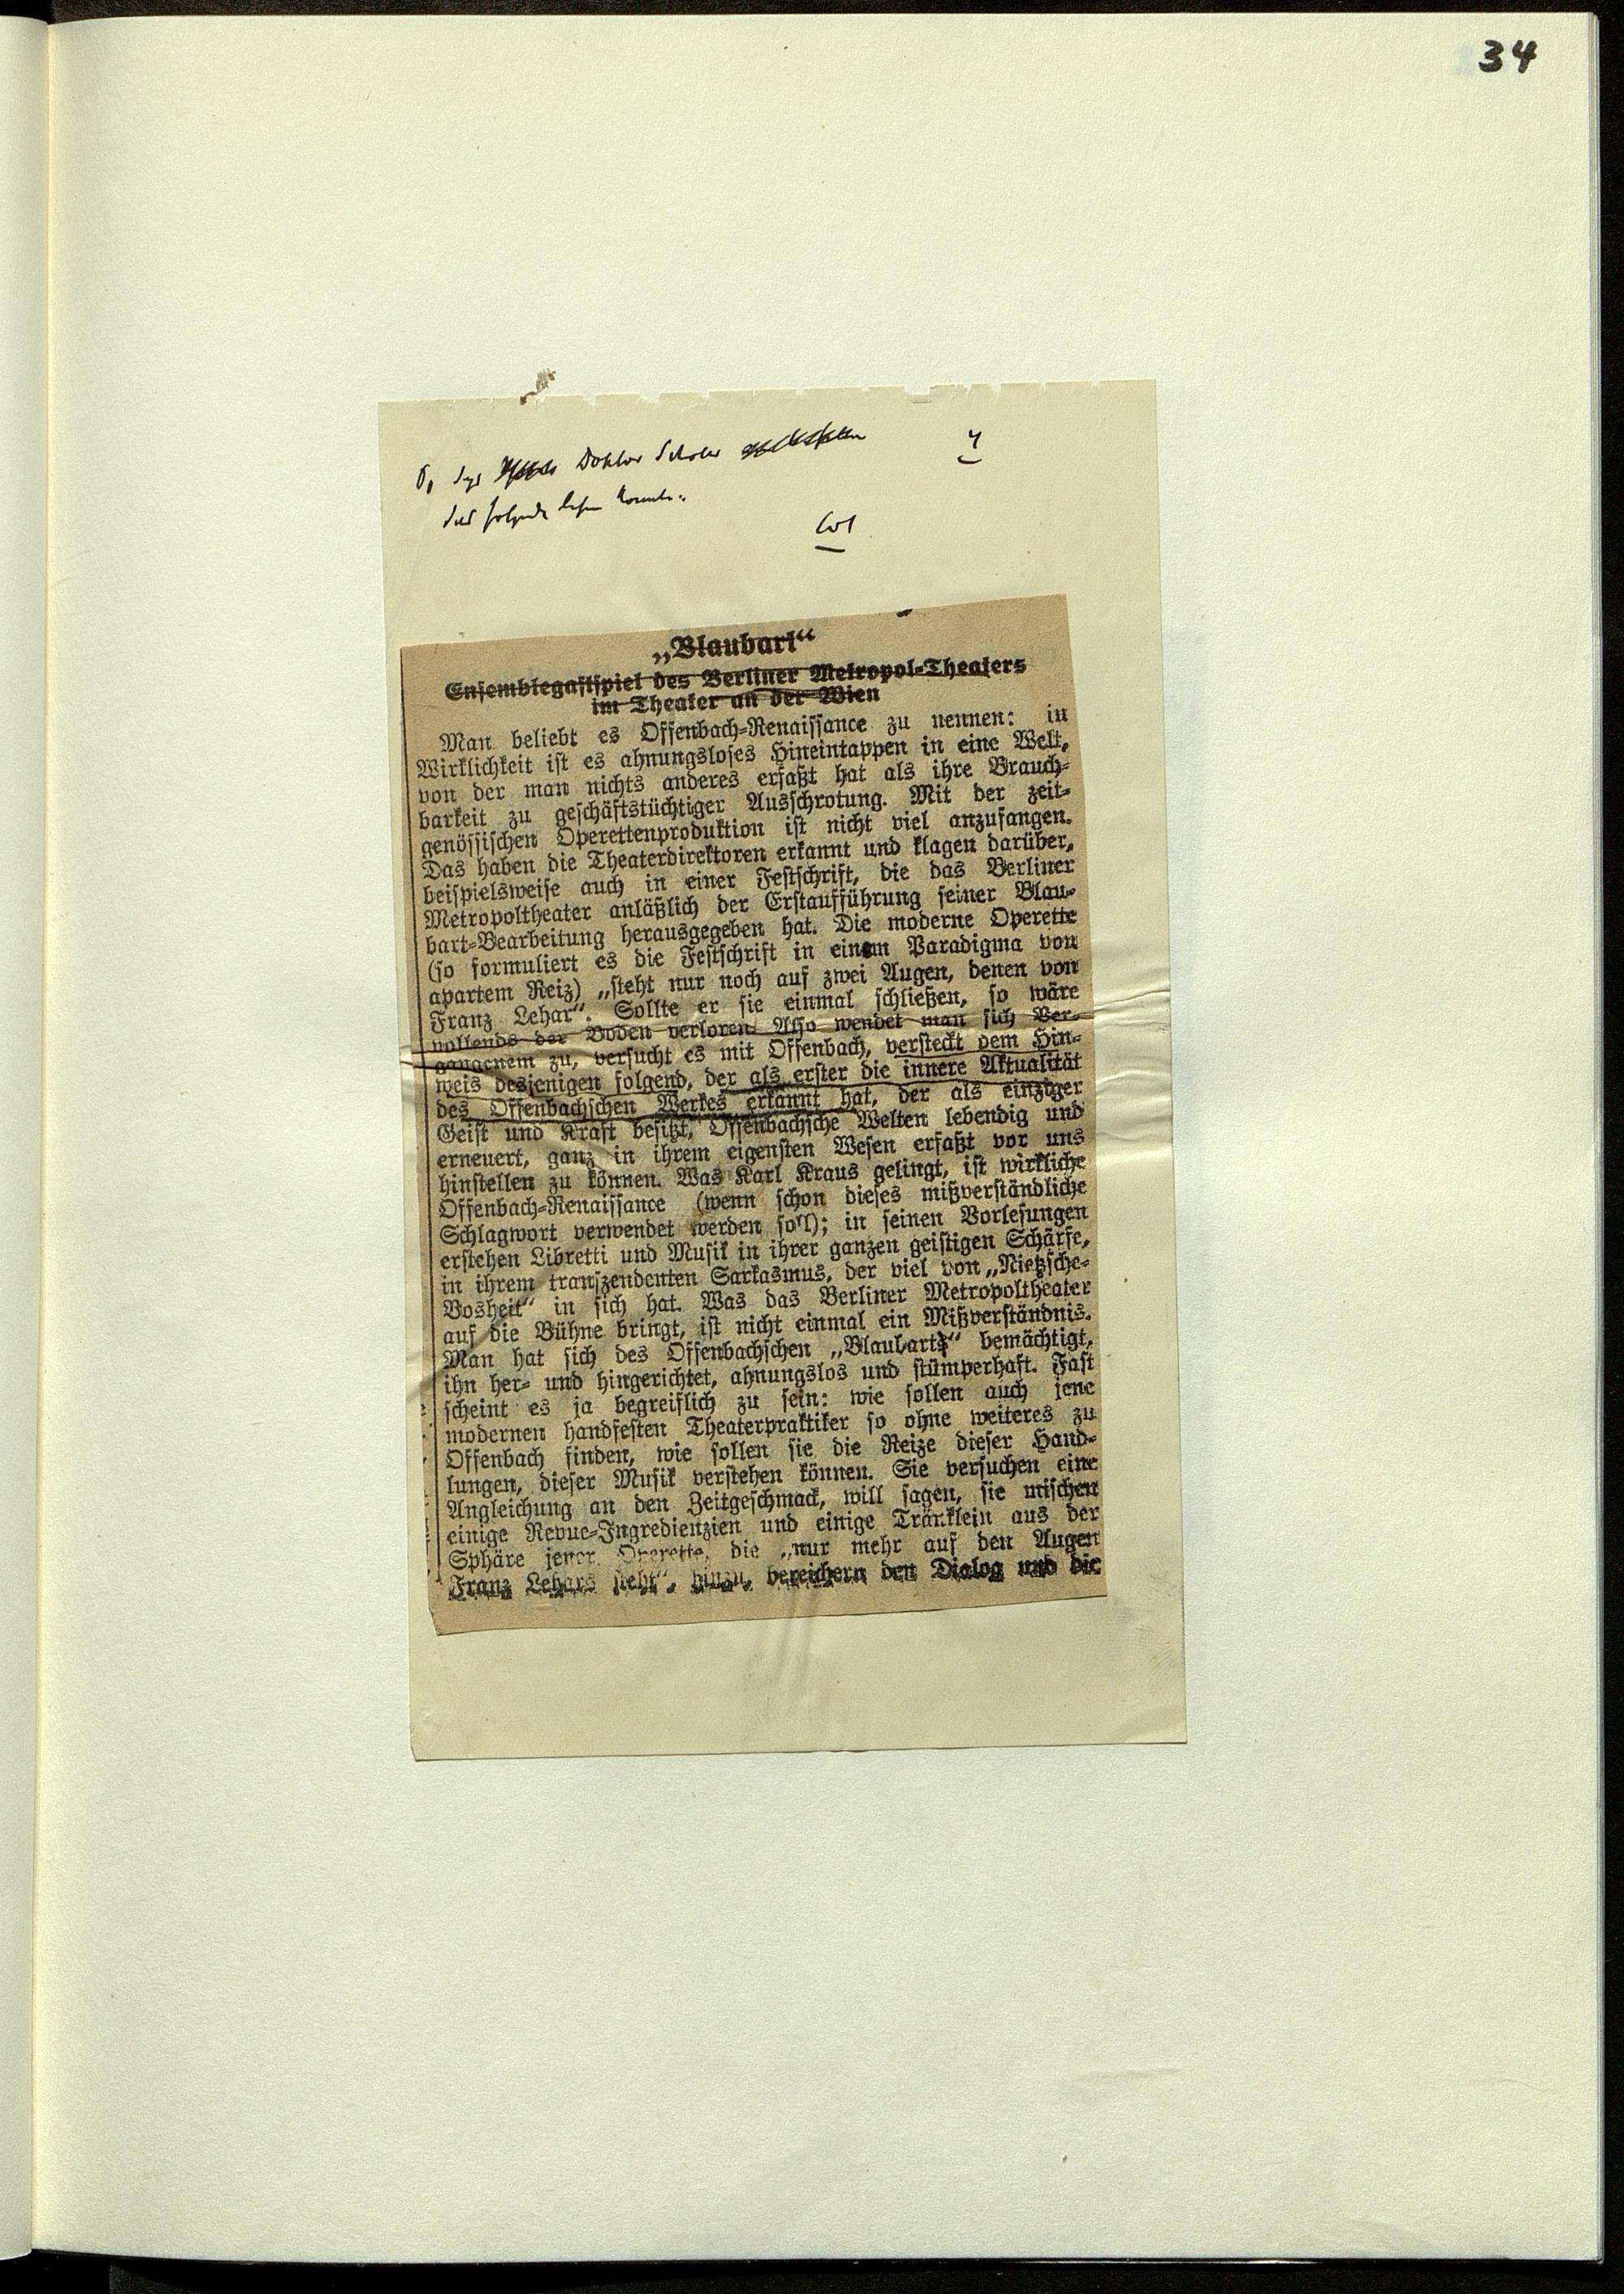 34
Doktor
4
das folgende lesen konnte:
„Blaubart“
Ensemblegastspiel des Berliner Metropol-Theaters
im Theater an der Wien
Man beliebt es Offenbach-Renaissance zu nennen: in
Wirklichkeit ist es ahnungsloses Hineintappen in eine Welt,
von der man nichts anderes erfaßt hat als ihre Brauch-
barkeit zu geschäftstüchtiger Ausschrotung. Mit der zeit-
genössischen Operettenproduktion ist nicht viel anzufangen.
Das haben die Theaterdirektoren erkannt und klagen darüber,
beispielsweise auch in einer Festschrift, die das Berliner
Metropoltheater anläßlich der Erstaufführung seiner Blau-
bart-Bearbeitung herausgegeben hat. Die moderne Operette
(so formuliert es die Festschrift in einem Paradigma von
apartem Reiz) „steht nur noch auf zwei Augen, denen von
Franz Lehar“. Sollte er sie einmal schließen, so wäre
vollends der Boden verloren. Also wendet man sich Ver-
gangenem zu, versucht es mit Offenbach, versteckt dem Hin-
weis desjenigen folgend, der als erster die innere Aktualität
des Offenbachschen Werkes erkannt hat, der als einziger
Geist und Kraft besitzt, Offenbachsche Welten lebendig und
erneuert, ganz in ihrem eigensten Wesen erfaßt vor uns
hinstellen zu können. Was Karl Kraus gelingt, ist wirkliche
Offenbach-Renaissance (wenn schon dieses mißverständliche
Schlagwort verwendet werden soll); in seinen Vorlesungen
erstehen Libretti und Musik in ihrer ganzen geistigen Schärfe,
in ihrem transzendenten Sarkasmus, der viel von „Nietzsche-
Bosheit“ in sich hat. Was das Berliner Metropoltheater
auf die Bühne bringt, ist nicht einmal ein Mißverständnis.
Man hat sich des Offenbachschen „Blaubarts“ bemächtigt,
ihn her- und hingerichtet, ahnungslos und stümperhaft. Fast
scheint es ja begreiflich zu sein: wie sollen auch jene
modernen handfesten Theaterpraktiker so ohne weiteres zu
Offenbach finden, wie sollen sie die Reize dieser Hand-
lungen, dieser Musik verstehen können. Sie versuchen eine
Angleichung an den Zeitgeschmack, will sagen, sie mischen
einige Revue-Ingredienzien und einige Tränklein aus der
Sphäre jener Operette, die „nur mehr auf den Augen
Franz Lehars steht“, hinzu, bereichern den Dialog und die